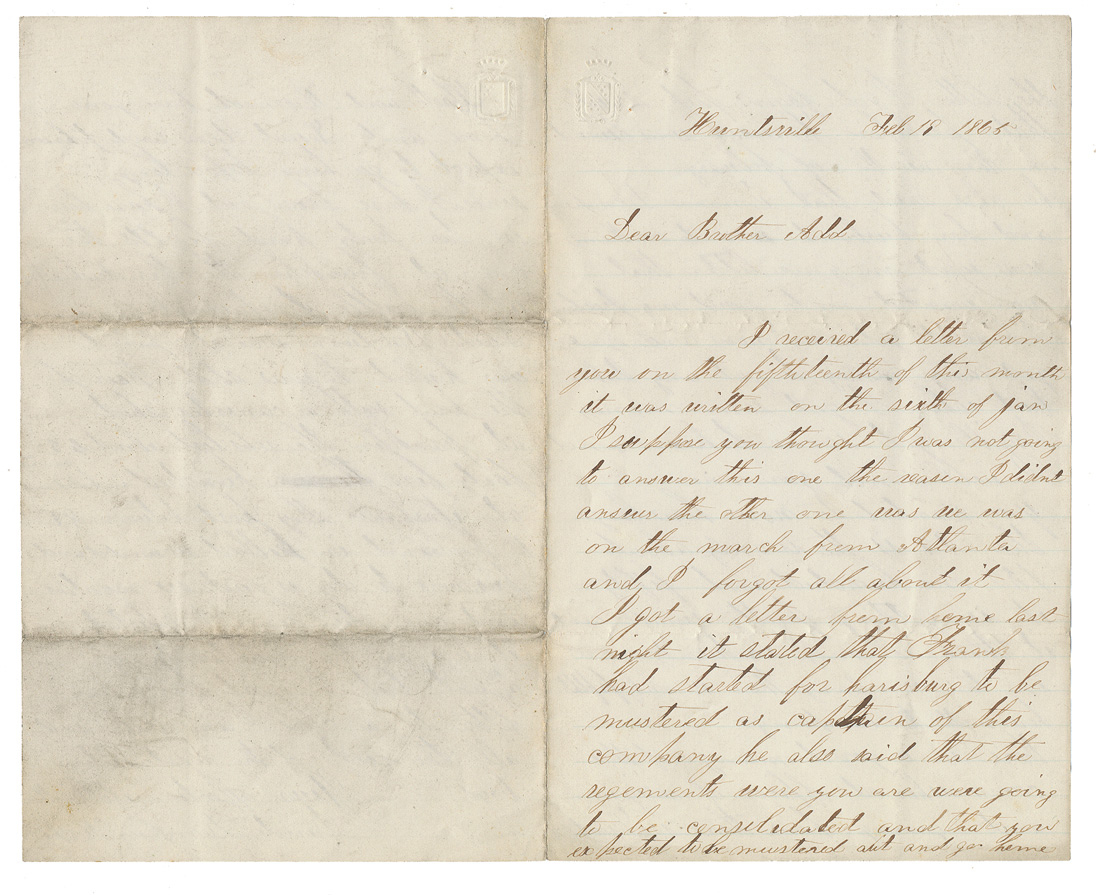 Huntsville Feb 19 1865
Dear Brother Add
I received a letter from
you on the fifthteenth of this month
it was written on the sixth of jan
I suppose you thought I was not going
to answer this one the reason I didnt
answer the other one was we was
on the march from Atlanta
and I forgot all about it
I got a letter from home last
night it stated that Frank
had started for harisburg to be
mustered as captain of this
company he also said that the
regements were you are were going
to be consolidated and that you
expected to be mustered out and go home